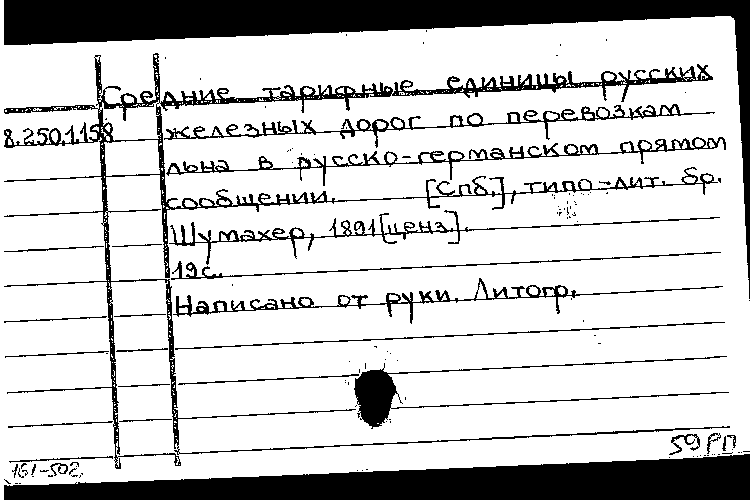 Средние тарифные единицы русских
8.250.1.158 железных дорог по перевозкам
льна в русско-германском прямом
сообщении. [Спб.], типо-лит. бр.
Шумахер, 1891[ценз.].
19с.
Написано от руки. Литогр.
59РП
161-502.